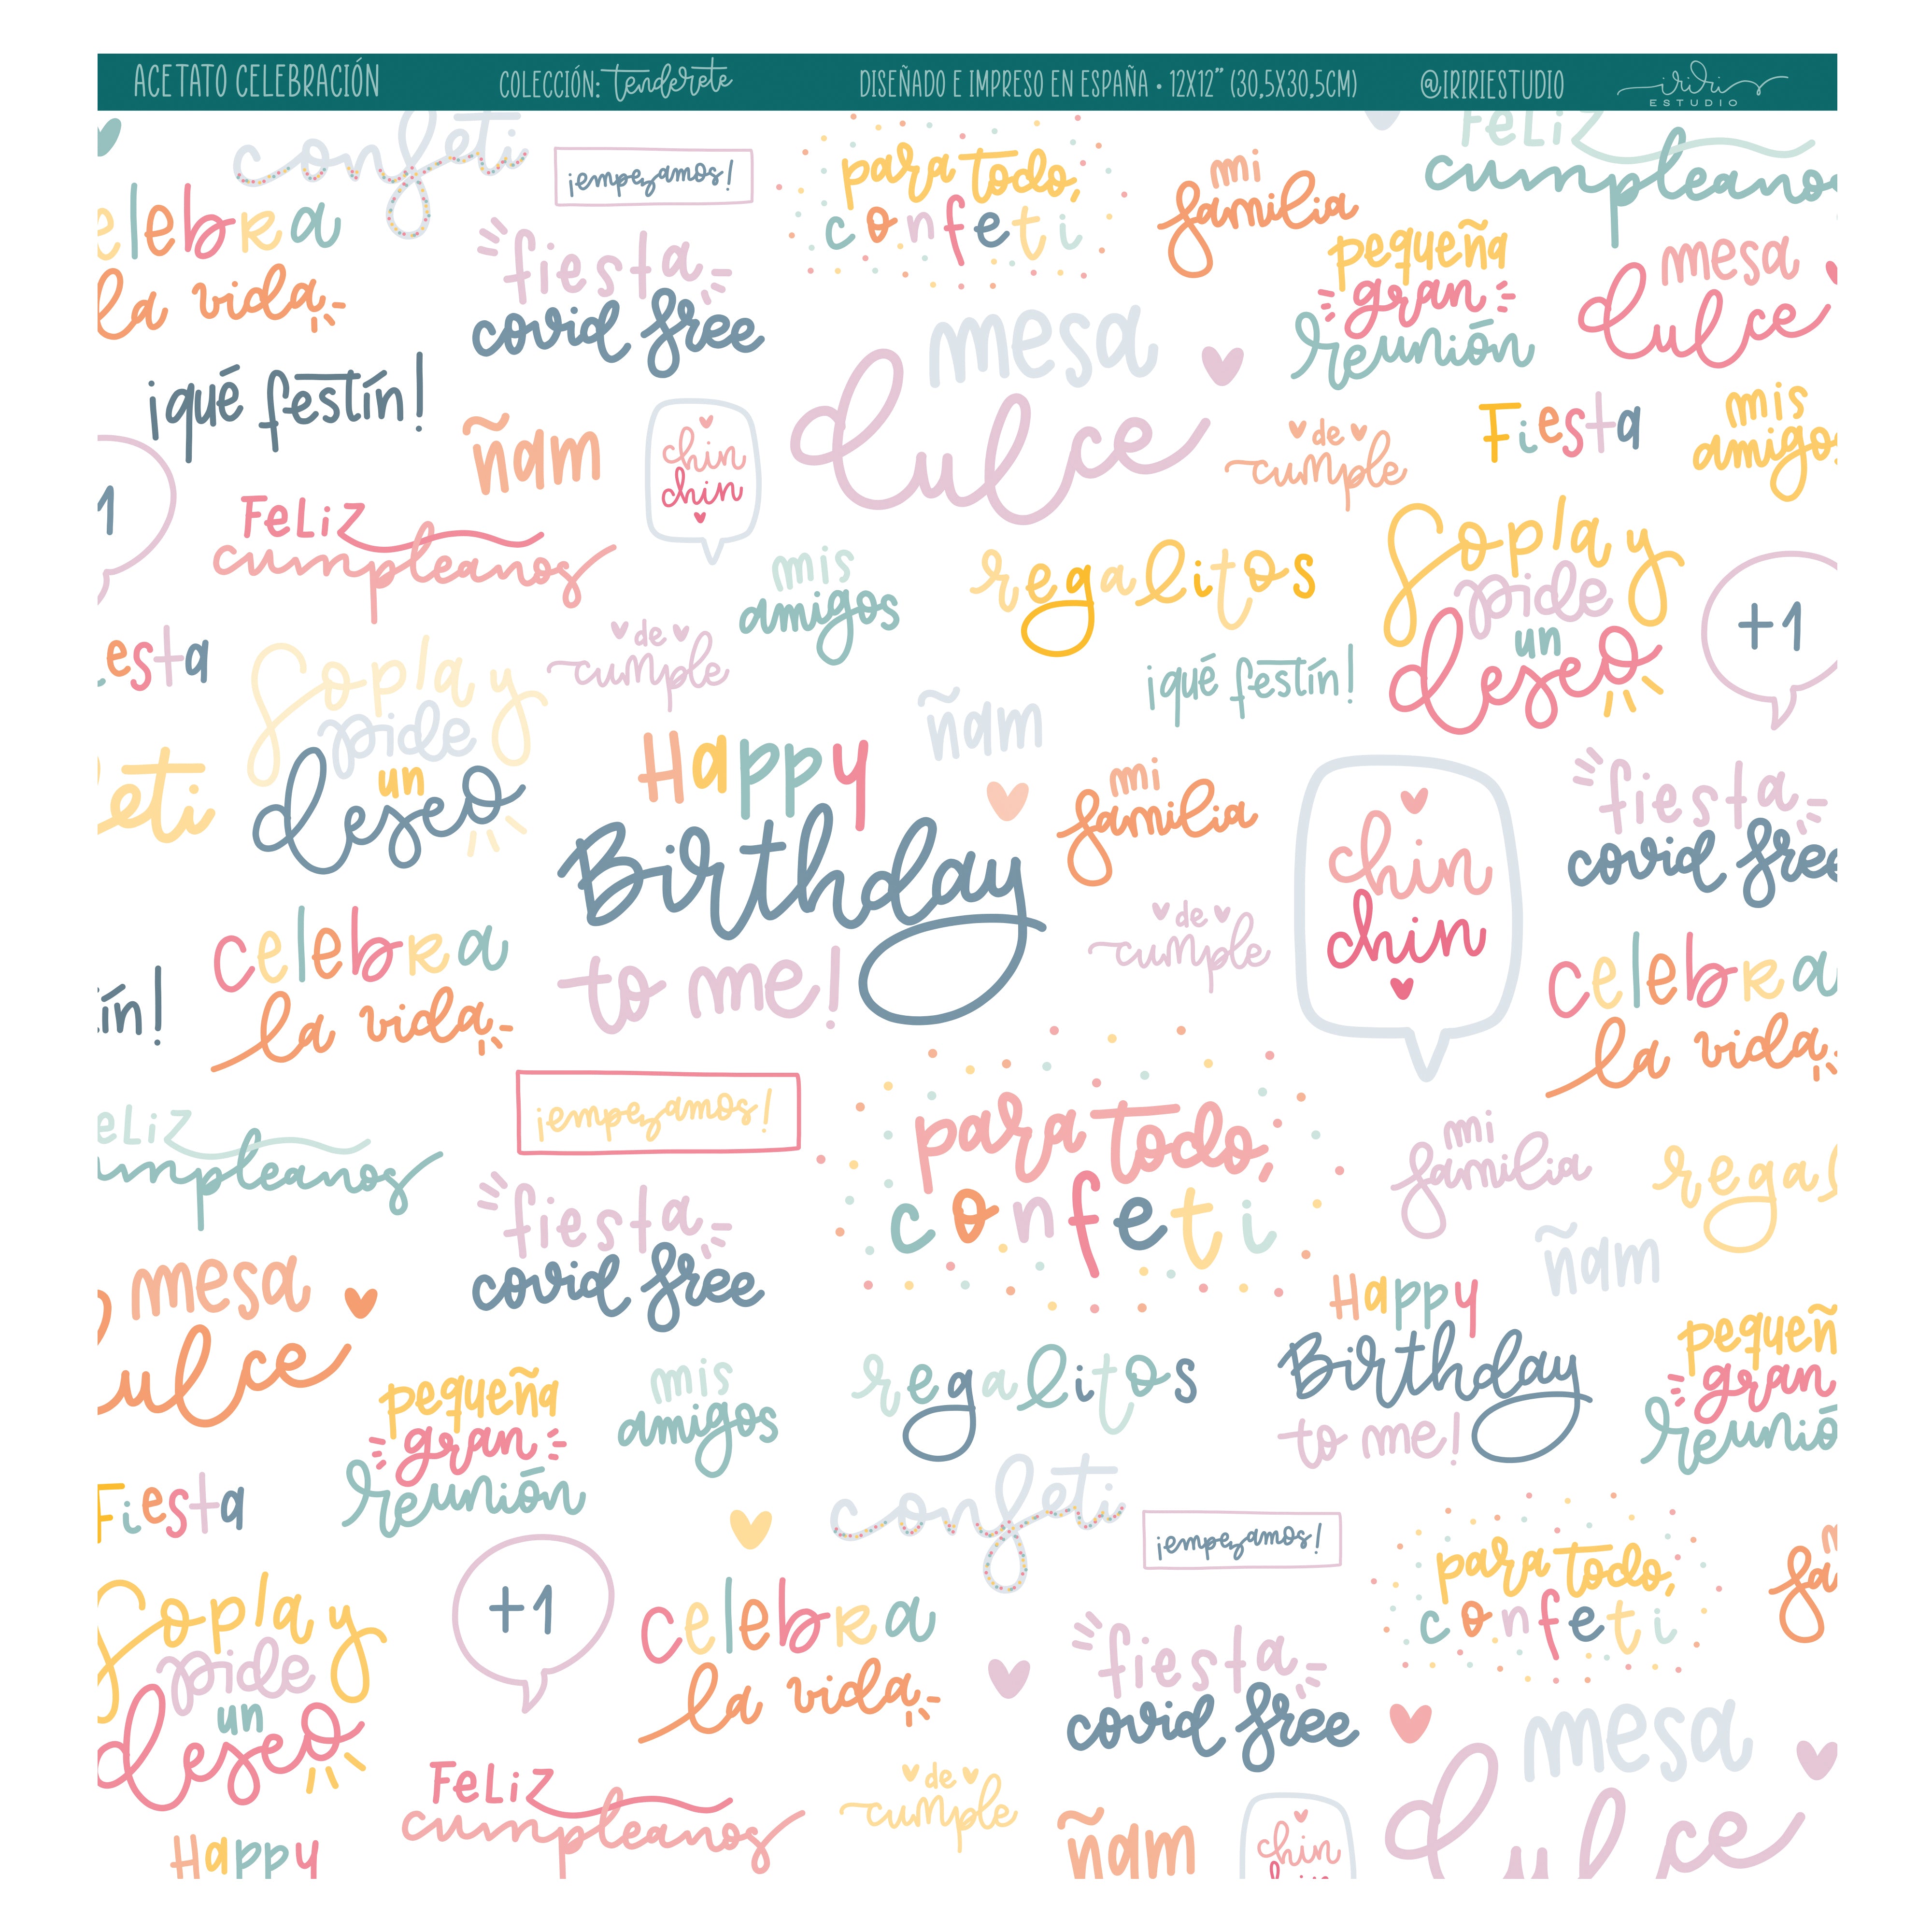 ACETATO CELEBRACIÓN
COLECCIÓN: tenderete
DISEÑADO E IMPRESO EN ESPAÑA • 12X12” (30,5X30,5CM)
@IRIRIESTUDIO
iriri
ESTUDIO
confeti
¡empezamos!
para todo,
confeti
mi
familia
FeLiZ
cumpleanos
elebra
la vida
fiesta
covid free
pequeña
gran
reunión
mesa
dulce
mesa
dulce
¡qué festín!
ñam
chin
chin
de
cumple
Fiesta
mis
amigos
1
FeLiZ
cumpleanos
mis
amigos
regalitos
Sopla y
pide
un
deseo
+1
esta
Sopla y
pide
un
deseo
de
cumple
¡qué festín!
ñam
eti
Happy
Birthday
to me!
mi
familia
chin
chin
fiesta
covid free
celebra
la vida
de
cumple
celebra
la vida
ín!
eLiZ
umpleanos
¡empezamos!
para todo,
confeti
mi
familia
regal
fiesta
covid free
ñam
mesa
ulce
Happy
Birthday
to me!
pequeñ
gran
reunió
pequeña
gran
reunión
mis
amigos
regalitos
Fiesta
confeti
¡empezamos!
para todo,
confeti
fa
Sopla y
pide
un
deseo
+1
celebra
la vida
fiesta
covid free
mesa
dulce
FeLiZ
cumpleanos
de
cumple
Happy
ñam
chin